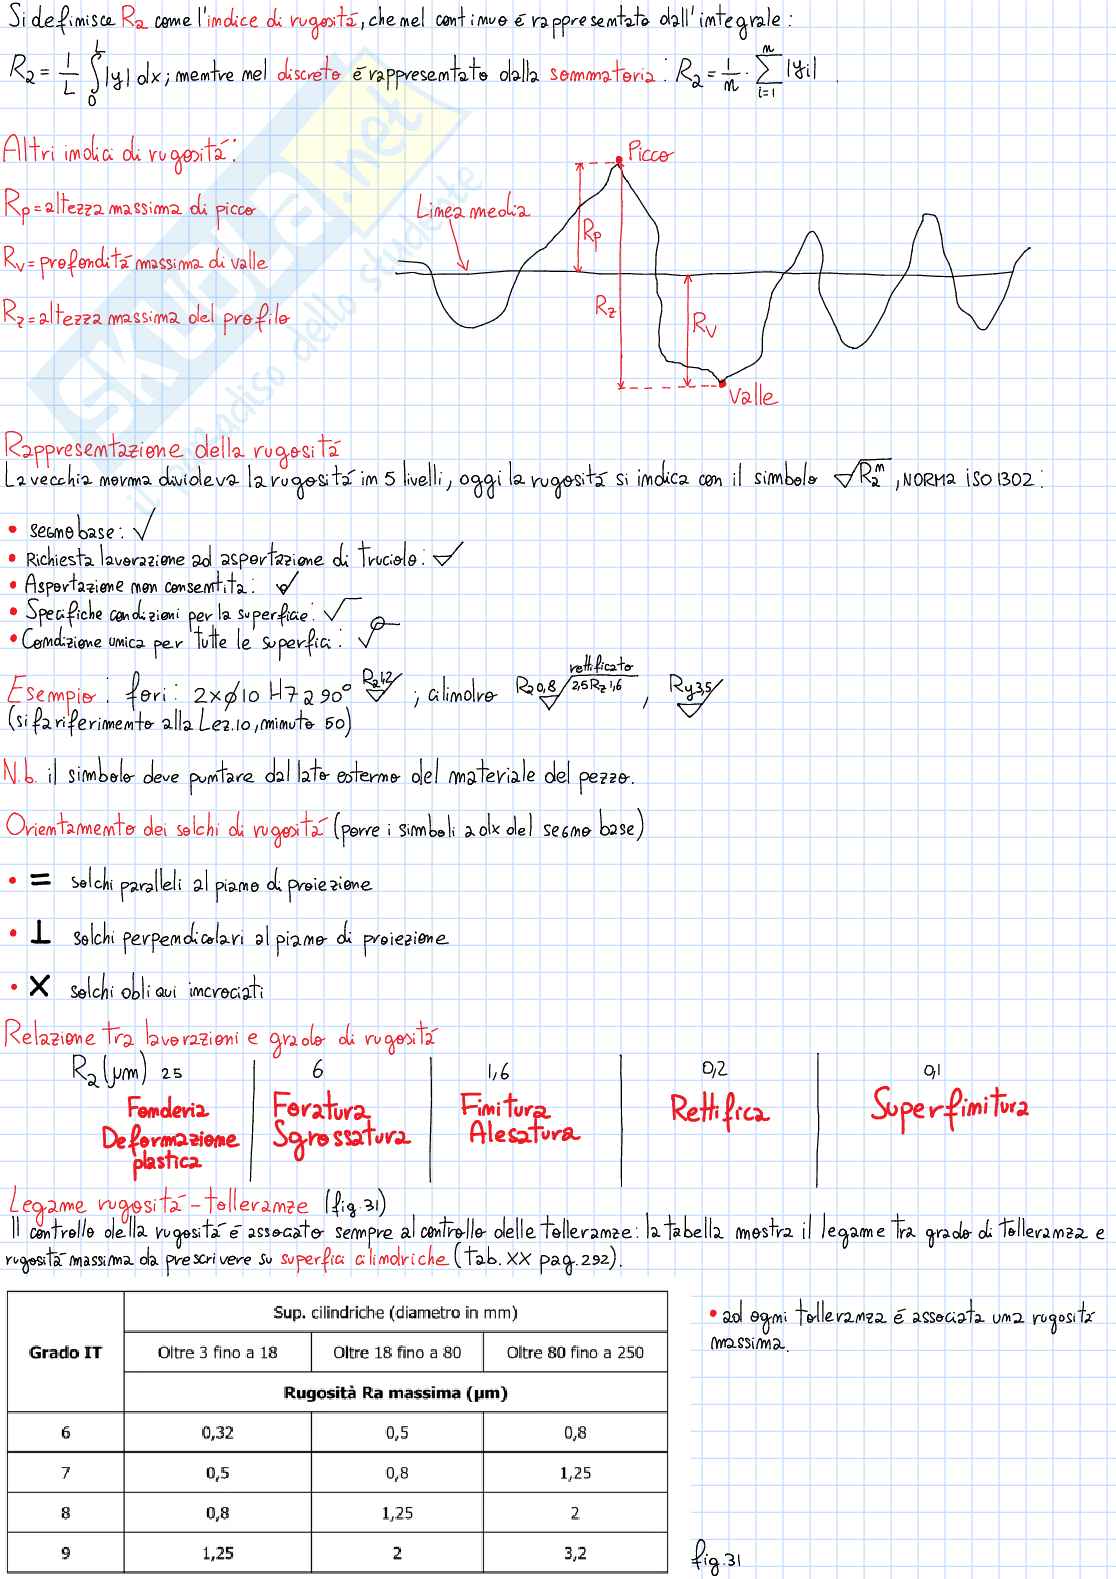 Si definisce Ra come l'indice di rugosità, che nel continuo è rappresentato dall'integrale:
Ra = 1/L ∫₀ᴸ |y| dx; mentre nel discreto è rappresentato dalla sommatoria: Ra = 1/n · Σᵢ₌₁ⁿ |yi|.
Altri indici di rugosità:
Rp = altezza massima di picco
Rv = profondità massima di valle
Rz = altezza massima del profilo
Picco
Linea media
Rp
Rz
Rv
Valle
SKUOLA.net
il paradiso dello studente
Rappresentazione della rugosità
La vecchia norma divideva la rugosità in 5 livelli, oggi la rugosità si indica con il simbolo Ra m, NORMA ISO 1302:
• segno base: √
• Richiesta lavorazione ad asportazione di truciolo:
• Asportazione non consentita:
• Specifiche condizioni per la superficie:
• Condizione unica per tutte le superfici:
Esempio: fori: 2xϕ10 H7 a 90° Ra1,2; cilindro Ra0,8 rettificato 2,5 Rz 1,6, Ry3,5
(si fa riferimento alla Lez.10, minuto 50)
N.b. il simbolo deve puntare dal lato esterno del materiale del pezzo.
Orientamento dei solchi di rugosità (porre i simboli a dx del segno base)
• = solchi paralleli al piano di proiezione
• ⊥ solchi perpendicolari al piano di proiezione
• X solchi obliqui incrociati
Relazione tra lavorazioni e grado di rugosità
Ra (µm) 25 6 1,6 0,2 0,1
Fonderia Foratura Finitura Rettifica Superfinitura
Deformazione Sgrossatura Alesatura
plastica
Legame rugosità - tolleranze (fig.31)
Il controllo della rugosità è associato sempre al controllo delle tolleranze: la tabella mostra il legame tra grado di tolleranza e
rugosità massima da prescrivere su superfici cilindriche (Tab. XX pag. 292).
Sup. cilindriche (diametro in mm)
Grado IT Oltre 3 fino a 18 Oltre 18 fino a 80 Oltre 80 fino a 250
Rugosità Ra massima (µm)
6 0,32 0,5 0,8
7 0,5 0,8 1,25
8 0,8 1,25 2
9 1,25 2 3,2
• ad ogni tolleranza è associata una rugosità
massima.
fig.31